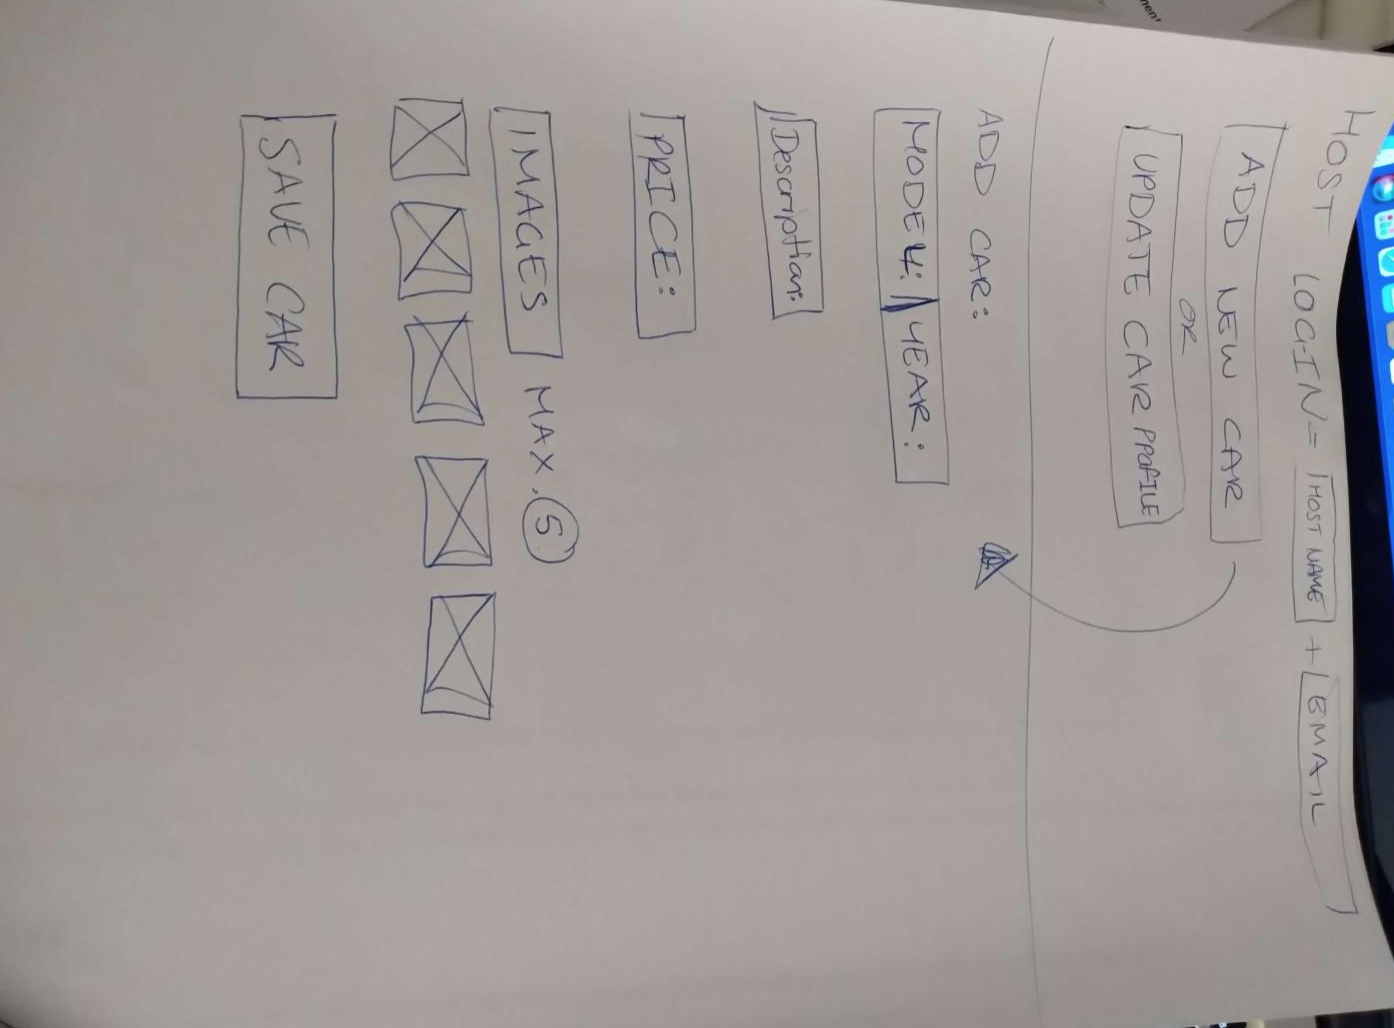 HOST LOGIN = HOST NAME + EMAIL
ADD NEW CAR
OR
UPDATE CAR PROFILE
ADD CAR:
MODEL: YEAR:
Description:
PRICE:
IMAGES MAX. 5
SAVE CAR